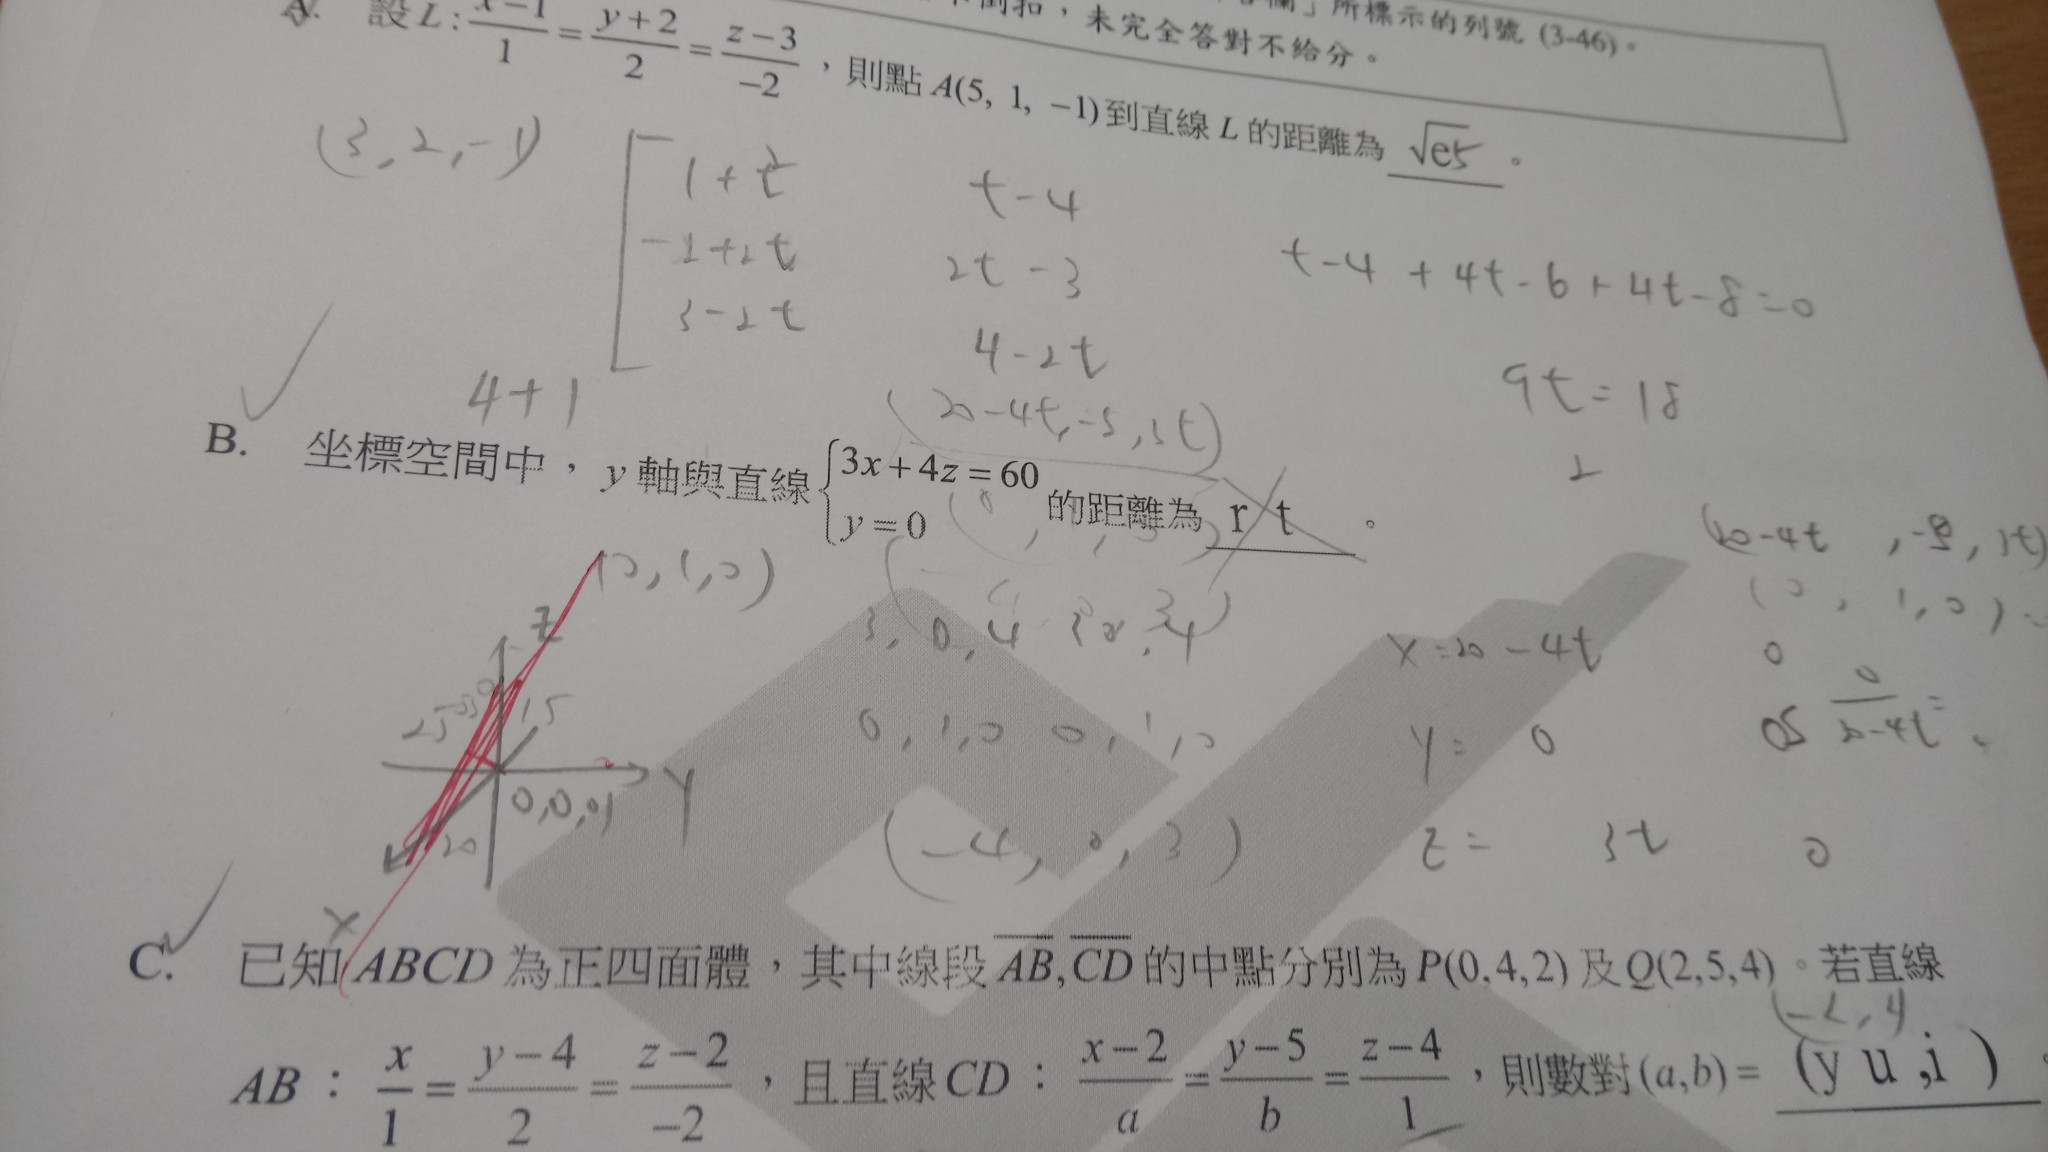 倒扣,未完全答對不給分。
欄」所標示的列號 (3-46)。
A. 設 L: x-1/1 = y+2/2 = z-3/-2,則點 A(5, 1, -1) 到直線 L 的距離為 √e5。
(3,2,-1)
1+t
t-4
-2+2t
2t-3
t-4+4t-6+4t-8=0
3-2t
4-2t
9t=18
2
4+1
(20-4t,-5,3t)
B. 坐標空間中,y 軸與直線 {3x+4z=60 y=0 的距離為 r t。
(0,1,0)
(20-4t,-5,3t)
(0,1,0)=
Z
3,0,4
x=20-4t
0
25
15
0,1,0 0,1,0
y= 0
Y
0,0,0
20
(-4,0,3)
z= 3t
0
X
C. 已知 ABCD 為正四面體,其中線段 AB,CD 的中點分別為 P(0,4,2) 及 Q(2,5,4)。若直線
(-2,4
AB:x/1 = y-4/2 = z-2/-2,且直線 CD:x-2/a = y-5/b = z-4/1,則數對 (a,b) = (y u,i )。